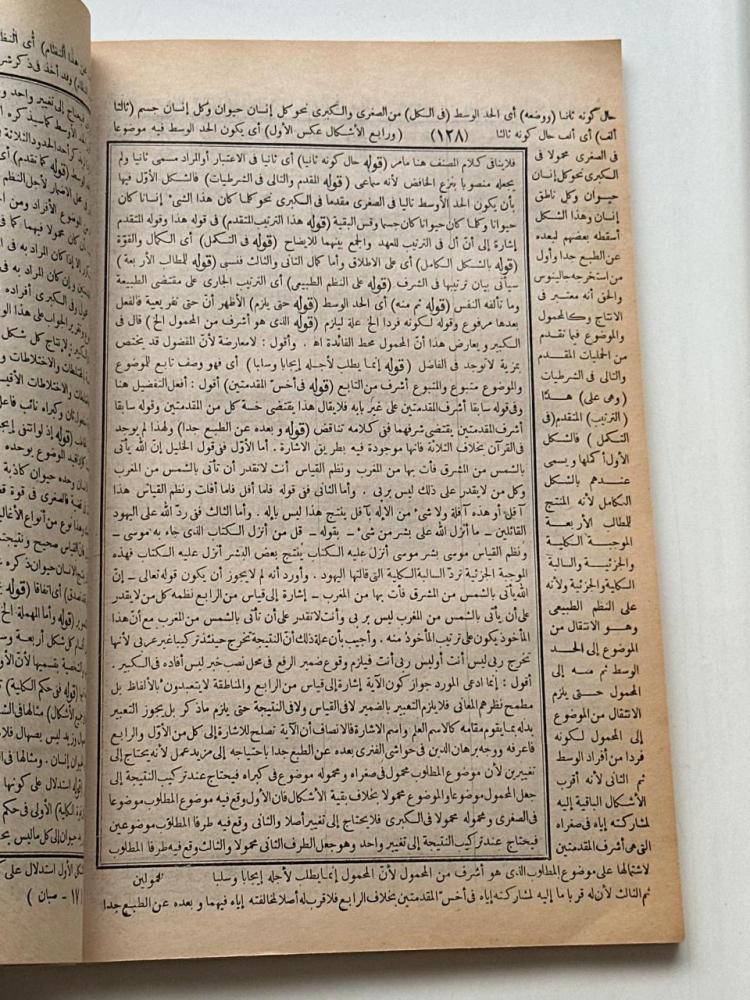 حال كونه ثانيا (ووضعه) أى الحد الوسط (فى الكل) من الصغرى والكبرى نحو كل إنسان حيوان وكل إنسان جسم (ثالثا
ألف) أى ألف حال كونه ثالثا (١٢٨) (ورابع الأشكال عكس الأول) أى يكون الحد الوسط فيه موضوعا
فى الصغرى محمولا فى
الكبرى نحو كل إنسان
حيوان وكل ناطق
إنسان وهذا الشكل
أسقطه بعضهم لبعده
عن الطبع جدا وأول
من استخرجه جالينوس
والحق أنه معتبر فى
الانتاج وكالمحمول
والموضوع فيما تقدم
من الحمليات المقدم
والتالى فى الشرطيات
(وهى على) هذا
(الترتيب) المتقدم (فى
التكمل) فالشكل
الأول أكملها ويسمى
عندهم بالشكل
الكامل لأنه المنتج
للمطالب الأربعة
الموجبة الكلية
والجزئية والسالبة
الكلية والجزئية ولأنه
على النظم الطبيعى
وهو الانتقال من
الموضوع إلى الحد
الوسط ثم منه إلى
المحمول حتى يلزم
الانتقال من الموضوع
إلى المحمول لكونه
فردا من أفراد الوسط
ثم الثانى لأنه أقرب
الأشكال الباقية إليه
لمشاركته إياه فى صغراه
التى هى أشرف المقدمتين
لاشتمالها على موضوع المطلوب الذى هو أشرف من المحمول لأن المحمول إنما يطلب لأجله إيجابا وسلبا
ثم الثالث لأن له قربا ما إليه لمشاركته إياه فى أخس المقدمتين بخلاف الرابع فلا قرب له أصلا لمخالفته إياه فيهما وبعده عن الطبع جدا
فلا ينافى كلام المصنف هنا مامر (قوله حال كونه ثانيا) أى ثانيا فى الاعتبار أو المراد مسمى ثانيا ولم
يجعله منصوبا بنزع الخافض لأنه سماعى (قوله المقدم والتالى فى الشرطيات) فالشكل الأول فيها
بأن يكون الحد الأوسط تاليا فى الصغرى مقدما فى الكبرى نحو كلما كان هذا الشىء إنسانا كان
حيوانا وكلما كان حيوانا كان جسما وقس البقية (قوله هذا الترتيب المتقدم) فى قوله هذا وقوله المتقدم
إشارة إلى أن أل فى الترتيب للعهد والجمع بينهما للايضاح (قوله فى التكمل) أى الكمال والقوة
(قوله بالشكل الكامل) أى على الاطلاق وأما كمال الثانى والثالث فنسبى (قوله للمطالب الأربعة)
سيأتى بيان ترتيبها فى الشرف (قوله على النظم الطبيعى) أى الترتيب الجارى على مقتضى الطبيعة
وما تألفه النفس (قوله ثم منه) أى الحد الوسط (قوله حتى يلزم) الأظهر أن حتى تفريعية فالفعل
بعدها مرفوع وقوله لكونه فردا الخ علة ليلزم (قوله الذى هو أشرف من المحمول الخ) قال فى
الكبير و يعارض هذا أن المحمول محط الفائدة اه . وأقول : لا معارضة لأن المفضول قد يختص
بمزية لا توجد فى الفاضل (قوله إنما يطلب لأجله إيجابا وسلبا) أى فهو وصف تابع للموضوع
والموضوع متبوع والمتبوع أشرف من التابع (قوله فى أخس المقدمتين) أقول : أفعل التفضيل هنا
وفى قوله سابقا أشرف المقدمتين على غير بابه فلا يقال هذا يقتضى خسة كل من المقدمتين وقوله سابقا
أشرف المقدمتين يقتضى شرفهما فى كلامه تناقض (قوله و بعده عن الطبع جدا) ولهذا لم يوجد
فى القرآن بخلاف الثلاثة فانها موجودة فيه بطريق الاشارة . أما الأول فى قول الخليل إن الله يأتى
بالشمس من المشرق فأت بها من المغرب ونظم القياس أنت لا تقدر أن تأتى بالشمس من المغرب
وكل من لا يقدر على ذلك ليس بربى . وأما الثانى ففى قوله فلما أفل فلما أفلت ونظم القياس هذا
آفل أو هذه آفلة ولا شىء من الإله بآفل ينتج هذا ليس بإله . وأما الثالث ففى رد الله على اليهود
القائلين ــ ما أنزل الله على بشر من شىء ــ بقوله ــ قل من أنزل الكتاب الذى جاء به موسى ــ
ونظم القياس موسى بشر موسى أنزل عليه الكتاب ينتج بعض البشر أنزل عليه الكتاب فهذه
الموجبة الجزئية تردّ السالبة الكلية التى قالتها اليهود . وأورد أنه لم لا يجوز أن يكون قوله تعالى ــ إن
الله يأتى بالشمس من المشرق فأت بها من المغرب ــ إشارة إلى قياس من الرابع نظمه كل من لا يقدر
على أن يأتى بالشمس من المغرب ليس بربى وأنت لا تقدر على أن تأتى بالشمس من المغرب مع أن هذا
المأخوذ يكون على ترتيب المأخوذ منه . وأجيب بأن علة ذلك أن النتيجة تخرج حينئذ تركيبا غير عربى لأنها
تخرج ربى ليس أنت أو ليس ربى أنت فيلزم وقوع ضمير الرفع فى محل نصب خبر ليس أفاده فى الكبير .
أقول : إنما ادعى المورد جواز كون الآية إشارة إلى قياس من الرابع والمناطقة لا يتعبدون بالألفاظ بل
مطمح نظرهم المعانى فلا يلزم التعبير بالضمير لا فى القياس ولا فى النتيجة حتى يلزم ما ذكر بل يجوز التعبير
بدله بما يقوم مقامه كالاسم العلم واسم الاشارة فالانصاف أن الآية تصلح للاشارة إلى كل من الأول والرابع
فاعرفه ووجه برهان الدين فى حواشى الفنرى بعده عن الطبع جدا باحتياجه إلى مزيد عمل لأنه يحتاج إلى
تغييرين لأن موضوع المطلوب محمول فى صغراه ومحموله موضوع فى كبراه فيحتاج عند تركيب النتيجة إلى
جعل المحمول موضوعا والموضوع محمولا بخلاف بقية الأشكال فان الأول وقع فيه موضوع المطلوب موضوعا
فى الصغرى ومحموله محمولا فى الكبرى فلا يحتاج إلى تغيير أصلا والثانى وقع فيه طرفا المطلوب موضوعين
فيحتاج عند تركيب النتيجة إلى تغيير واحد وهو جعل الطرف الثانى محمولا والثالث وقع فيه طرفا المطلوب
محمولين
(١٧ - صبان)